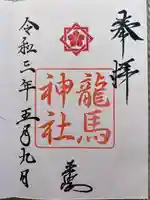 奉拝
龍馬
神社
令和三年五月九日